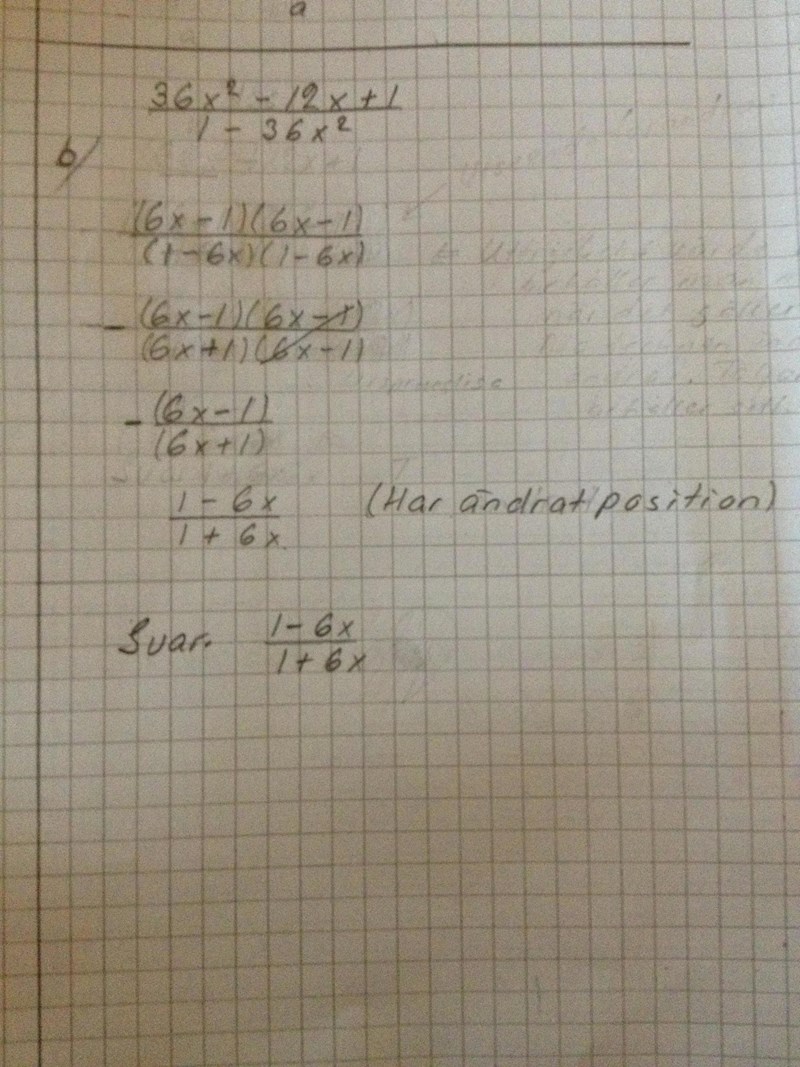 a
36x² - 12x + 1
1 - 36x²
b)
(6x - 1)(6x - 1)
(1 - 6x)(1 - 6x)
- (6x - 1)(6x - 1)
(6x + 1)(6x - 1)
- (6x - 1)
(6x + 1)
1 - 6x (Har ändrat position)
1 + 6x
Svar. 1 - 6x
1 + 6x